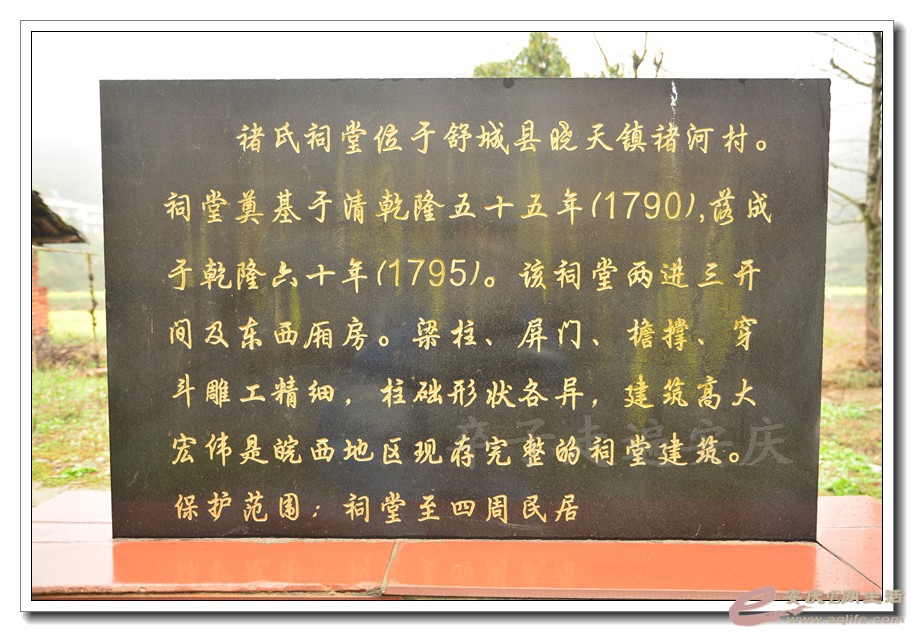 诸氏祠堂位于舒城县晓天镇褚河村。
祠堂奠基于清乾隆五十五年(1790),落成
于乾隆六十年(1795)。该祠堂两进三开
间及东西厢房。梁柱、屏门、檐撑、穿
斗雕工精细，柱础形状各异，建筑高大
宏伟是皖西地区现存完整的祠堂建筑。
保护范围：祠堂至四周民居
亲子走遍安庆
www.aqlife.com